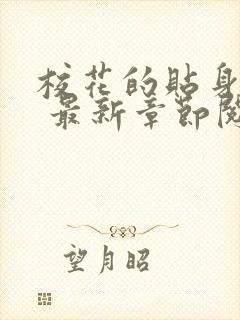 校花的贴身
最新章节阅
望月昭